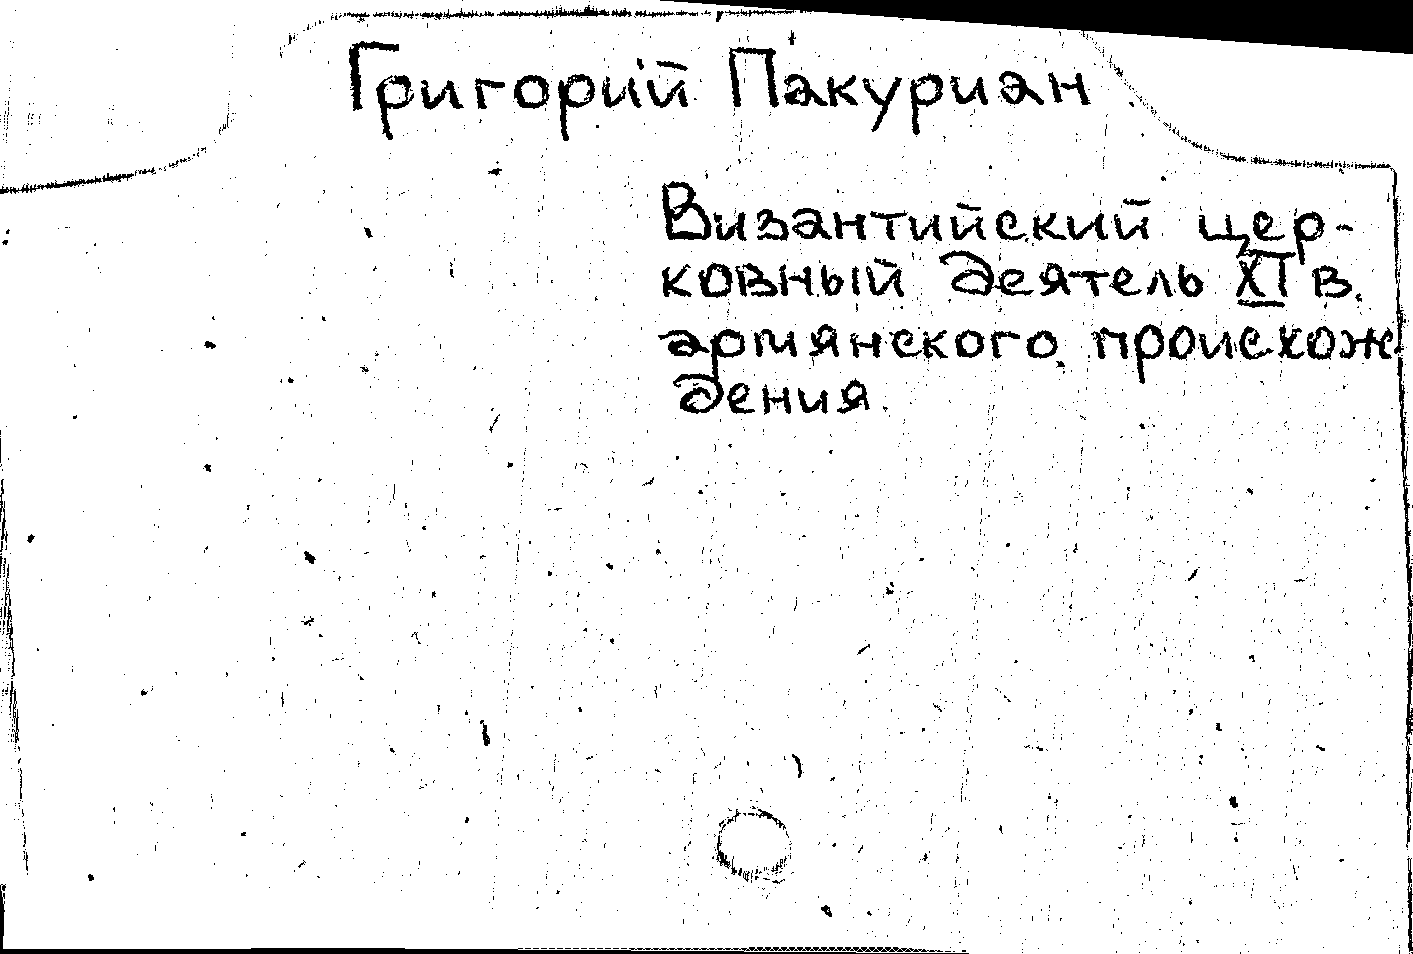 Григорий Пакуриан
Византийский цер-
ковный деятель XI в.
армянского происхож
дения.